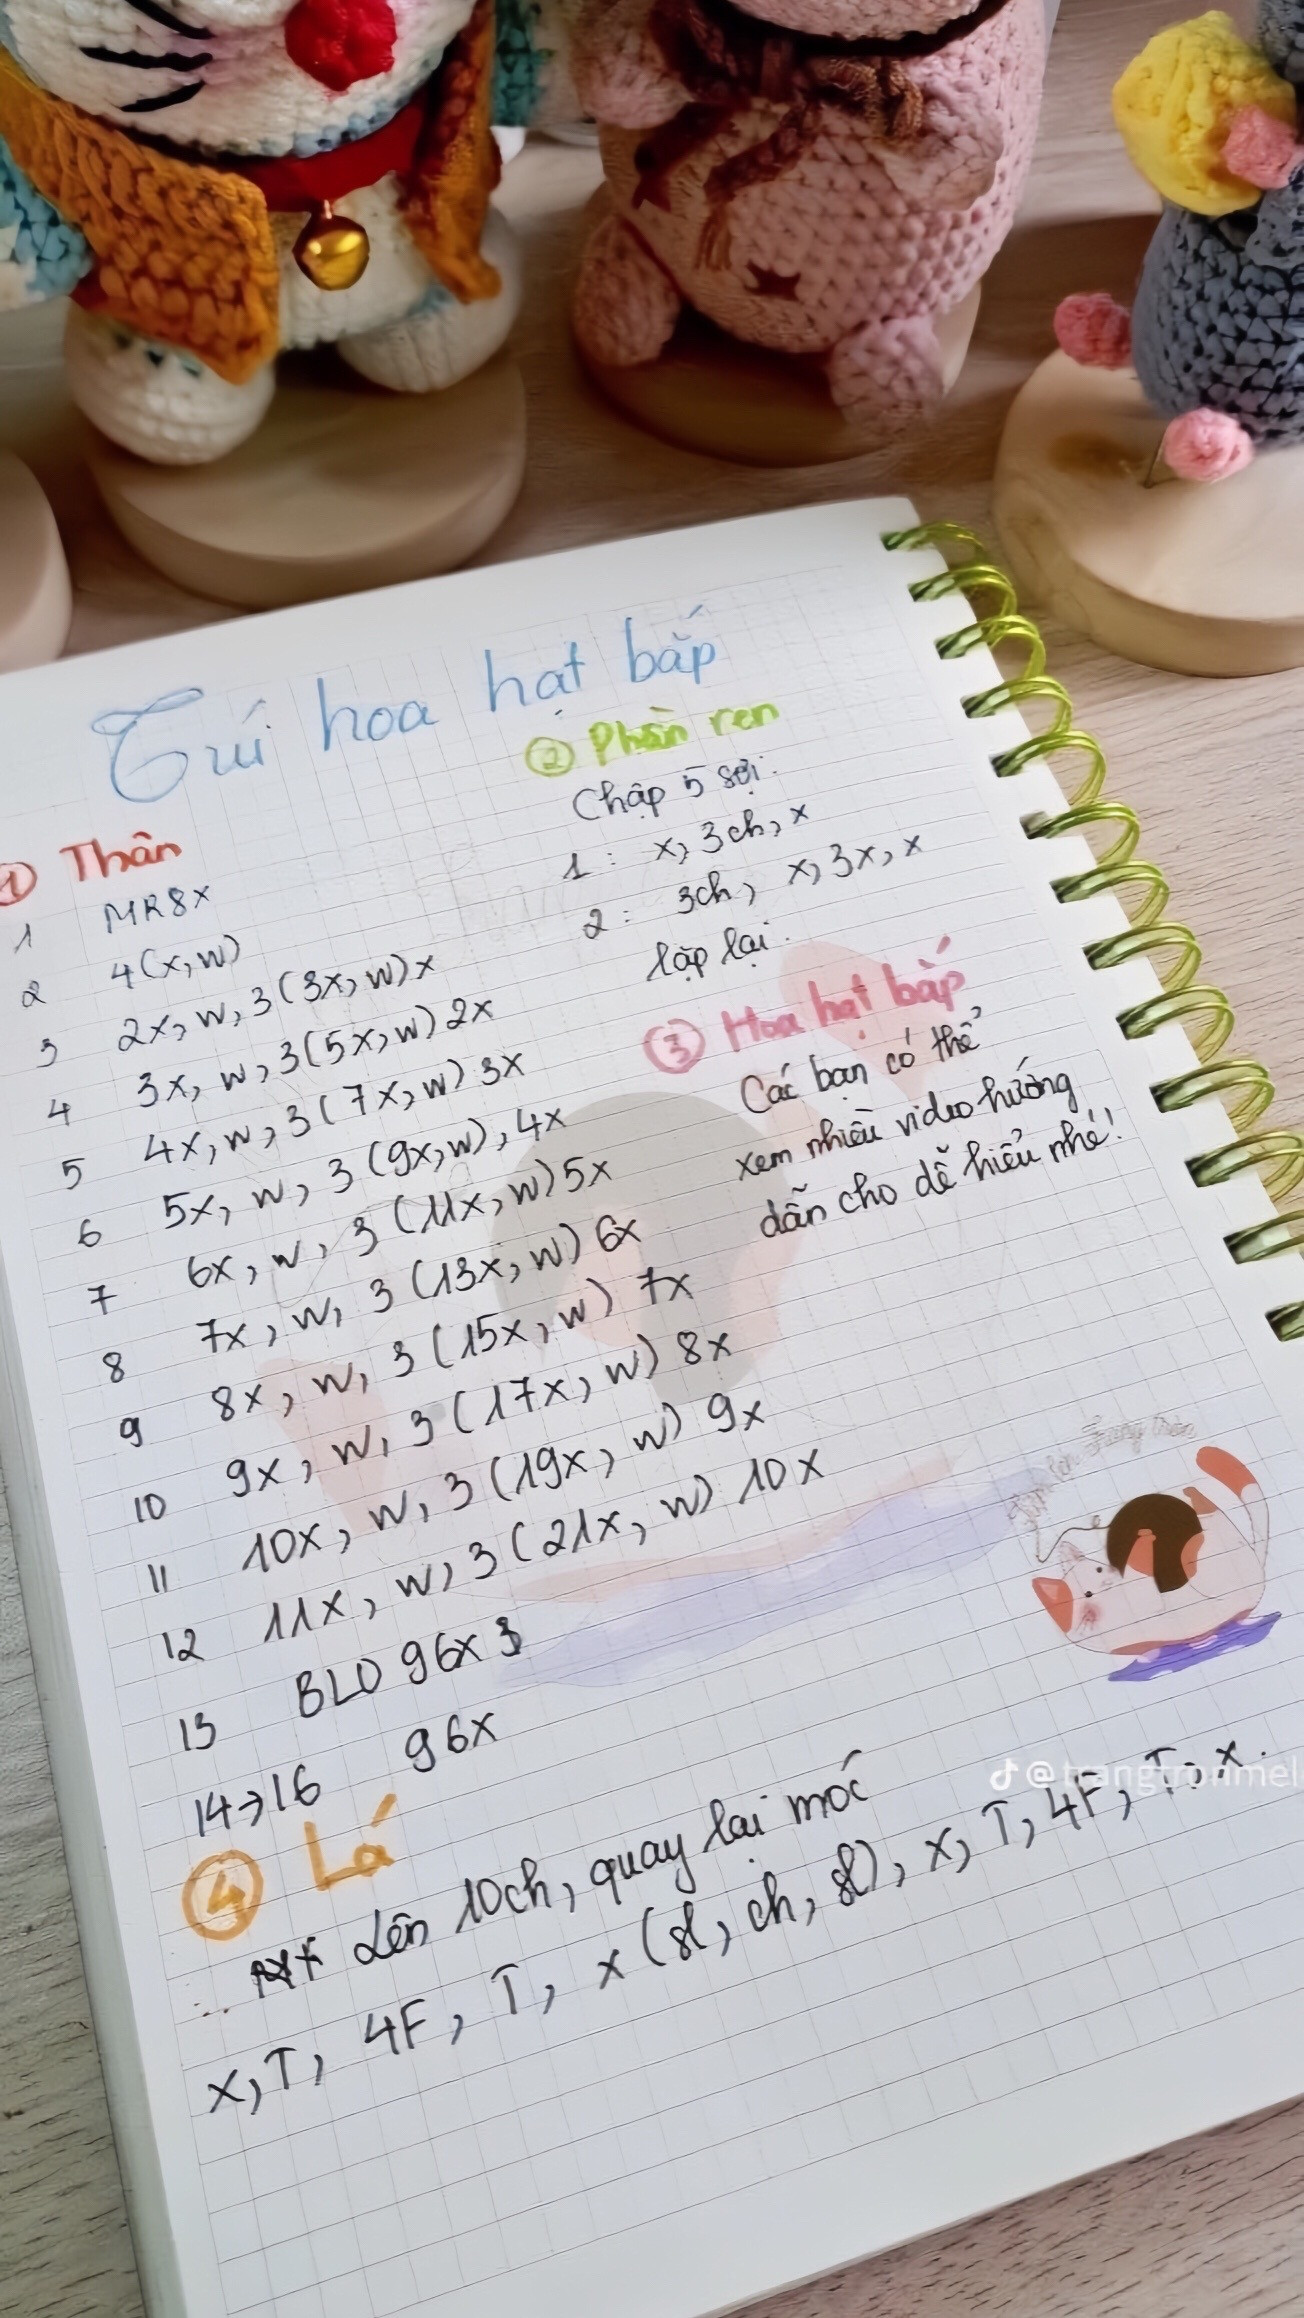 Túi hoa hạt bắp
① Thân
1 MR8x
2 4(x, w)
3 2x, w, 3(3x, w)x
4 3x, w, 3(5x, w)2x
5 4x, w, 3(7x, w)3x
6 5x, w, 3(9x, w), 4x
7 6x, w, 3(11x, w)5x
8 7x, w, 3(13x, w)6x
9 8x, w, 3(15x, w) 7x
10 9x, w, 3(17x, w) 8x
11 10x, w, 3(19x, w) 9x
12 11x, w, 3(21x, w) 10x
13 BLO 96x 3
14→16 96x
② Phần ren
Chập 5 sợi:
1: x, 3ch, x
2: 3ch, x, 3x, x
lặp lại.
③ Hoa hạt bắp
Các bạn có thể
xem nhiều video hướng
dẫn cho dễ hiểu nhé!
④ Lá
Lên 10ch, quay lại móc
x, T, 4F, T, x (sl, ch, sl), x, T, 4F, T, x.